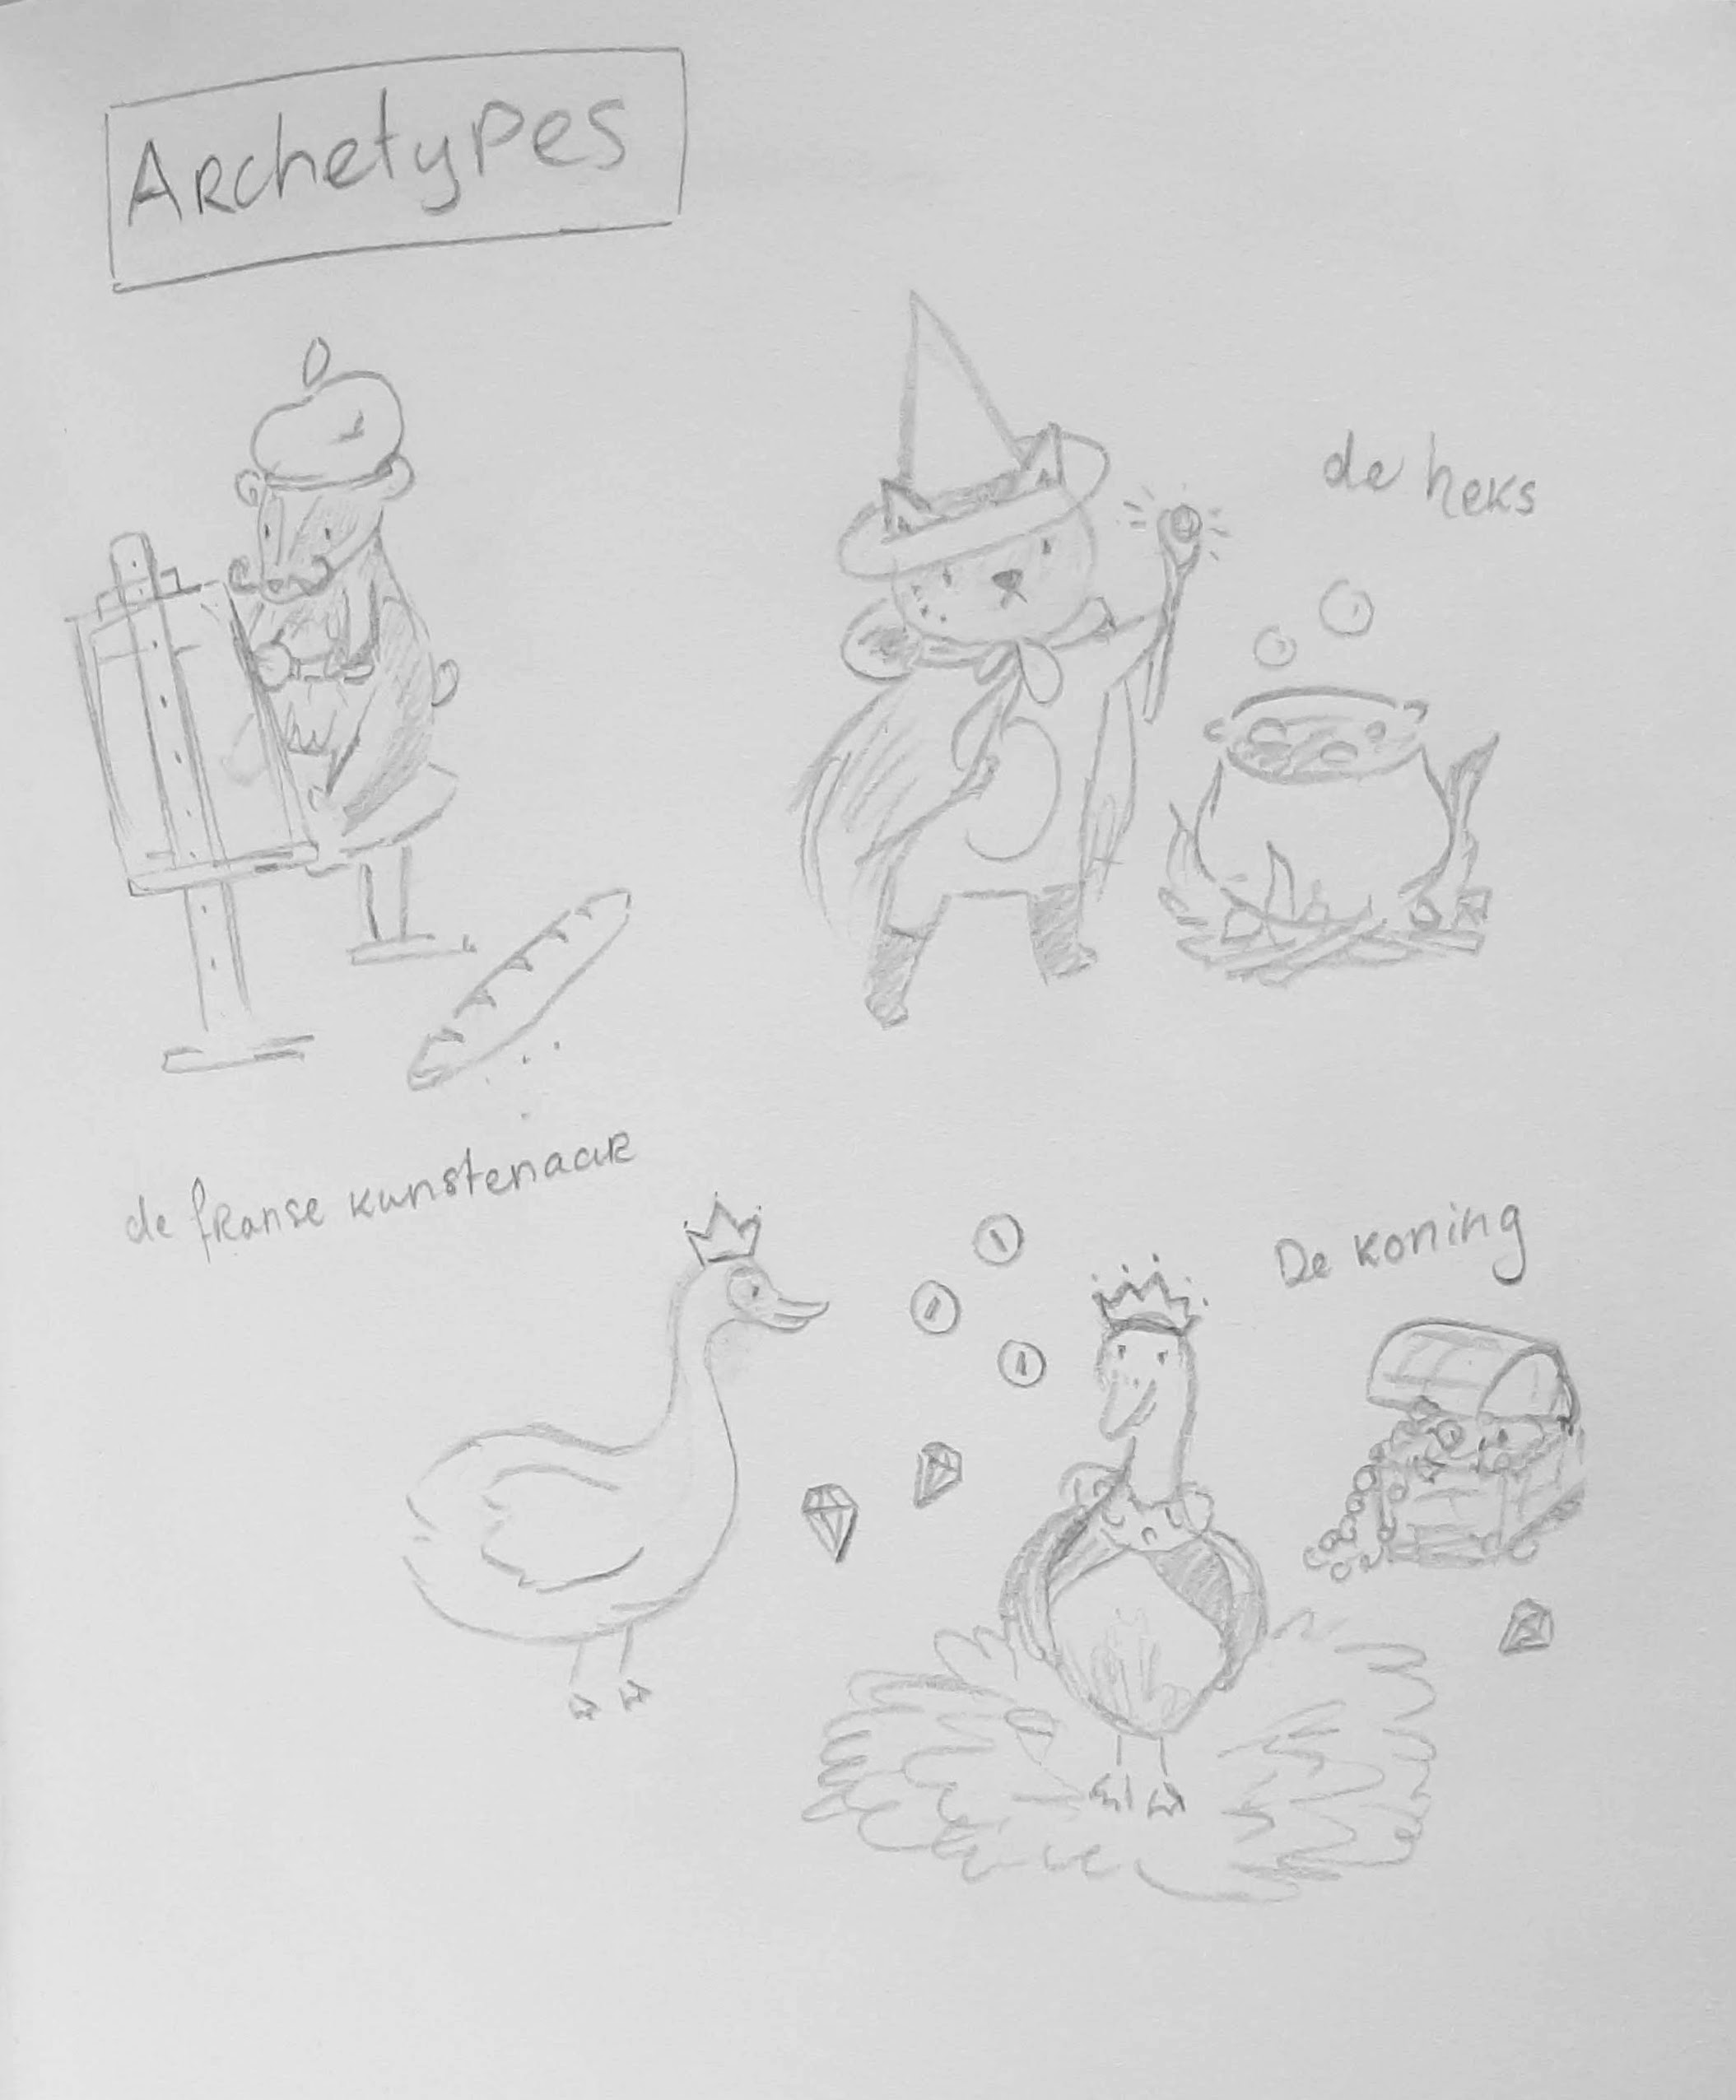 Archetypes
de heks
de franse kunstenaar
De koning